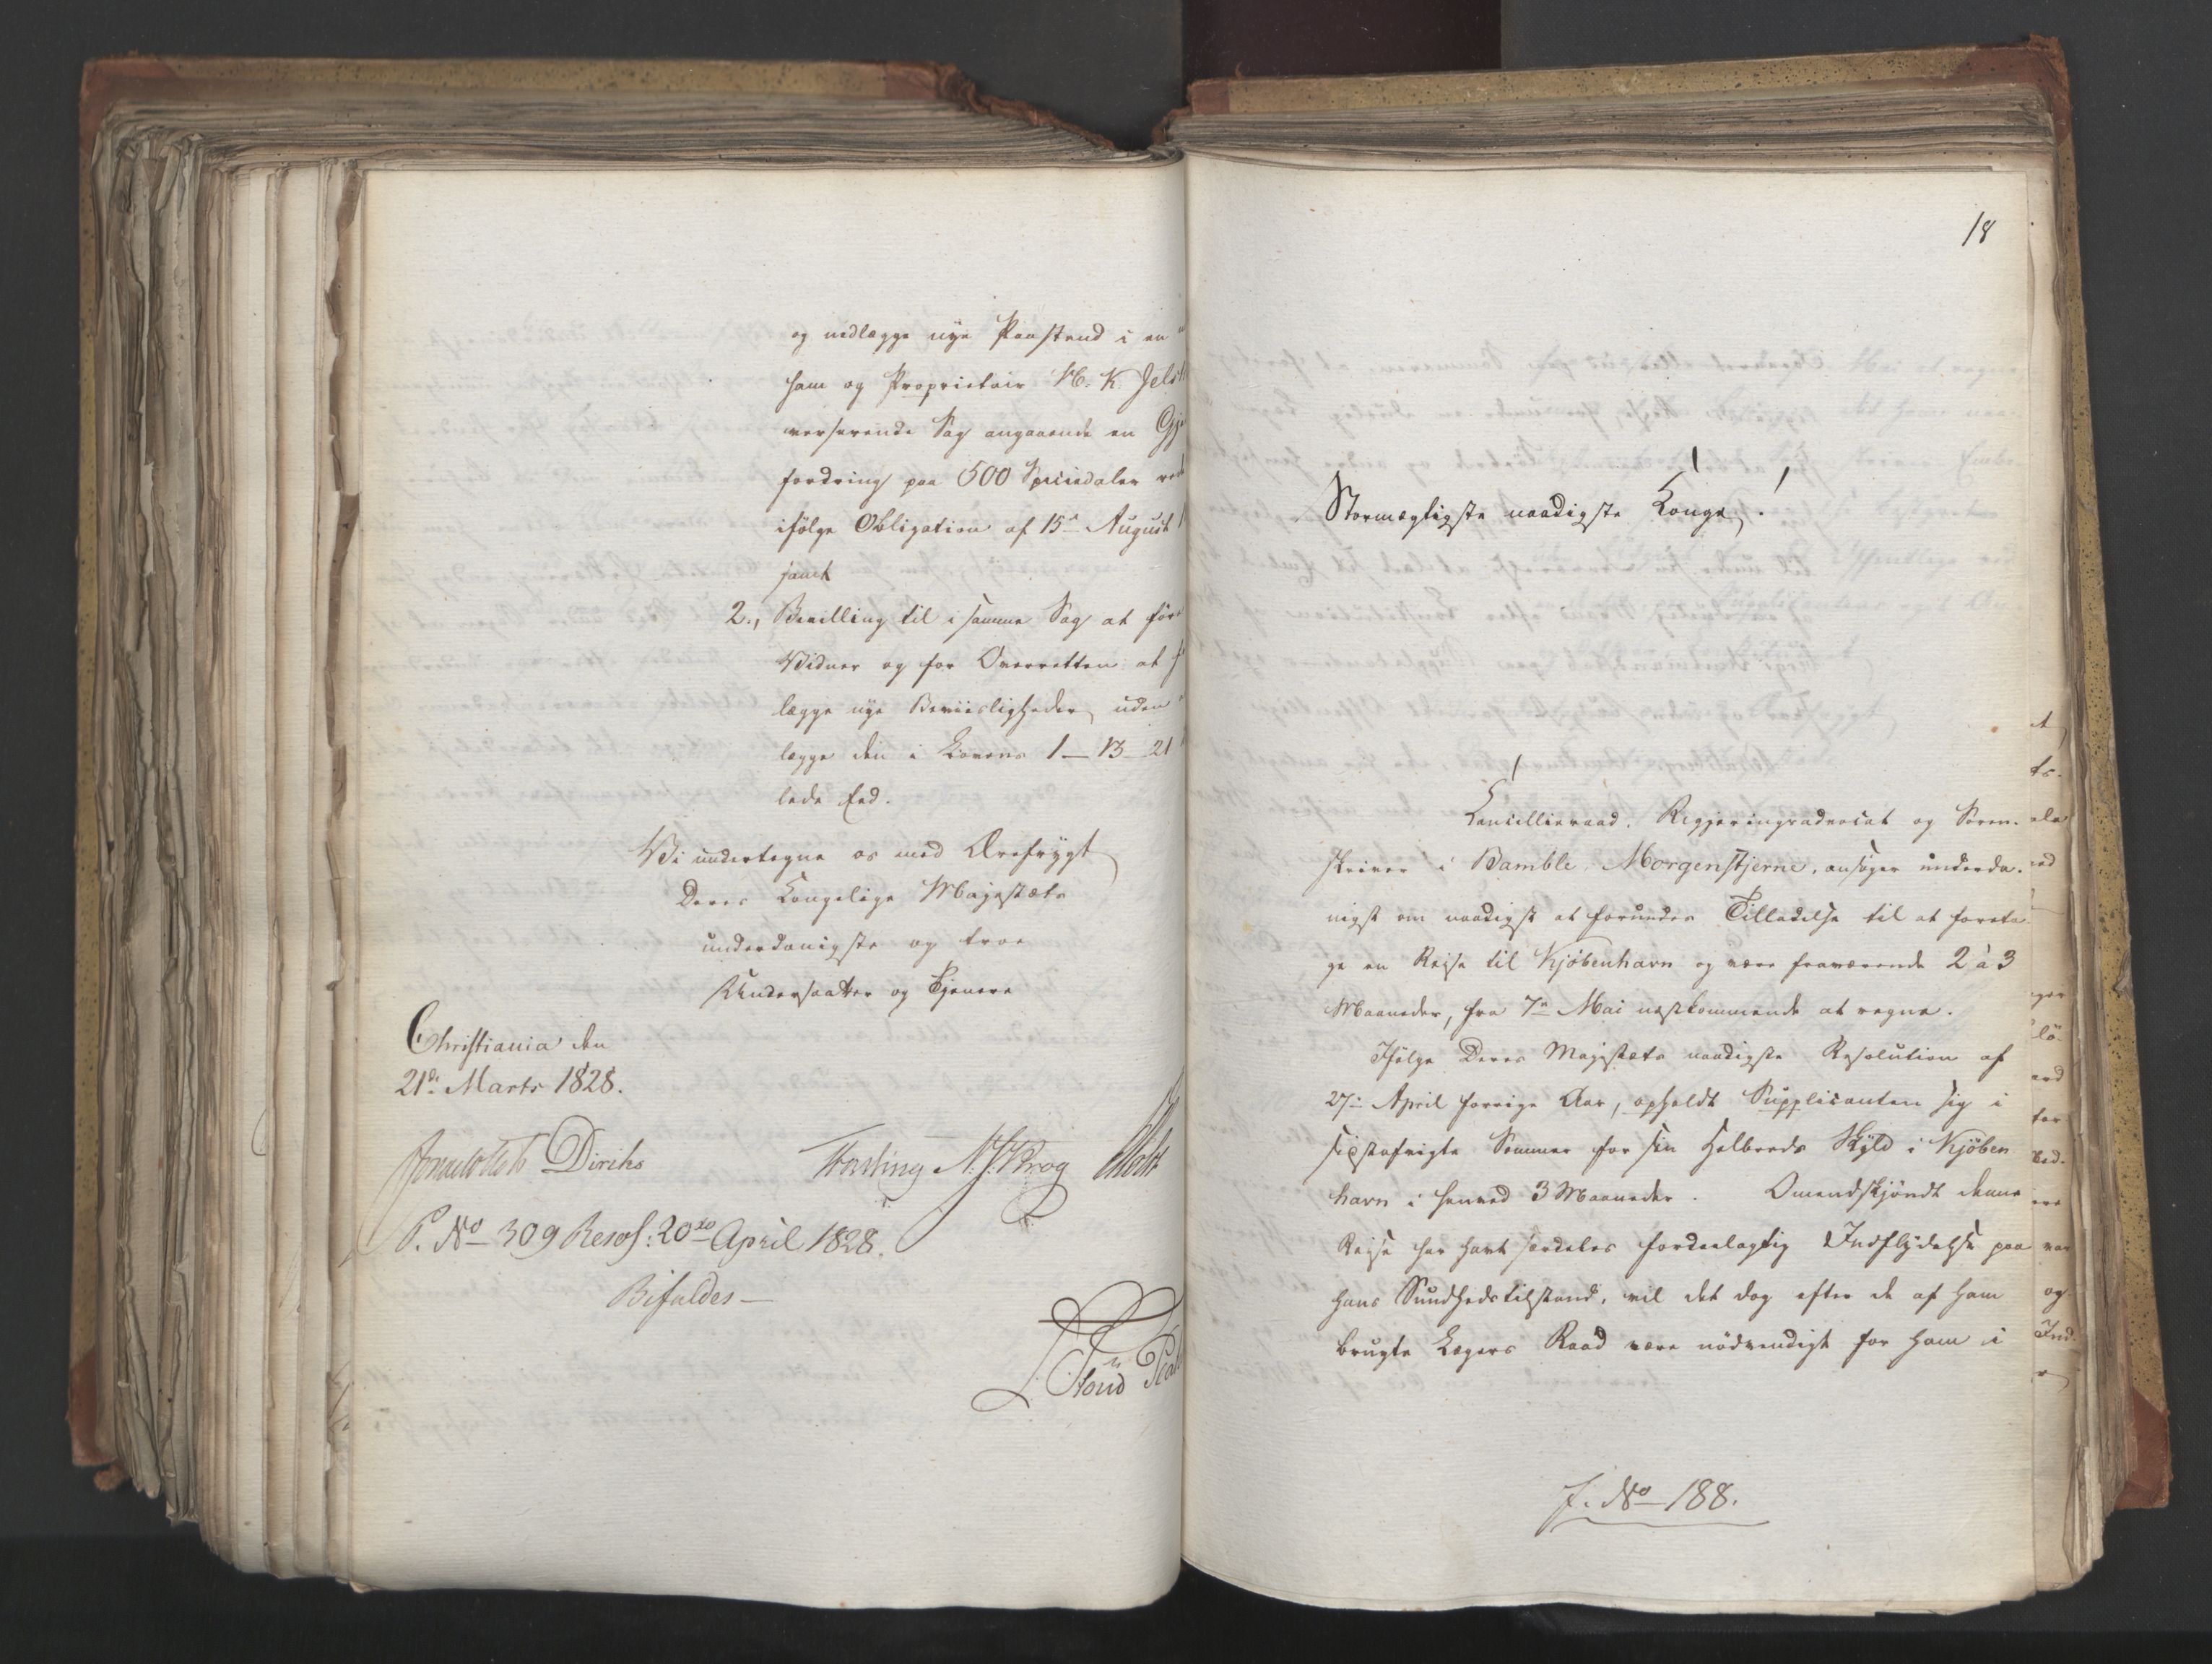 og nedlægge nye Paastand i en
ham og Proprietair M. K.
verserende Sag angaaende en
fordring paa 500 Speciedaler
ifølge Obligation af 15de August
samt
2., Bevilling til i samme Sag at føre
Vidner og for Overretten at
lægge nye Beviisligheder, uden
lægge den i Lovens 1–13–21
lede Eed.
Vi undertegne os med Ærefrygt
Deres Kongelige Majestæts
underdanigste og troe
Undersaatter og Tjenere
Christiania den
21de Marts 1828.
Diriks Krog
P. No 309 Resol: 20de April 1828.
Bifaldes —
18
Stormægtigste naadigste Konge!
Cancellieraad, Regjeringsadvocat og Soren-
skriver i Bamble, Morgenstjerne, ansøger underda-
nigst om naadigst at forundes Tilladelse til at foreta-
ge en Reise til Kjöbenhavn og være fraværende 2 à 3
Maaneder, fra 7de Mai næstkommende at regne.
Ifølge Deres Majestæts naadigste Resolution af
27de April forrige Aar, opholdt Supplicanten sig i
sidstafvigte Sommer for sin Helbreds Skyld i Kjöben
havn i henved 3 Maaneder. Omendskjöndt denne
Reise har havt særdeles fordeelagtig Indflydelse paa
hans Sundhedstilstand, vil det dog efter de af ham
brugte Lægers Raad være nödvendigt for ham i
J. No 188.